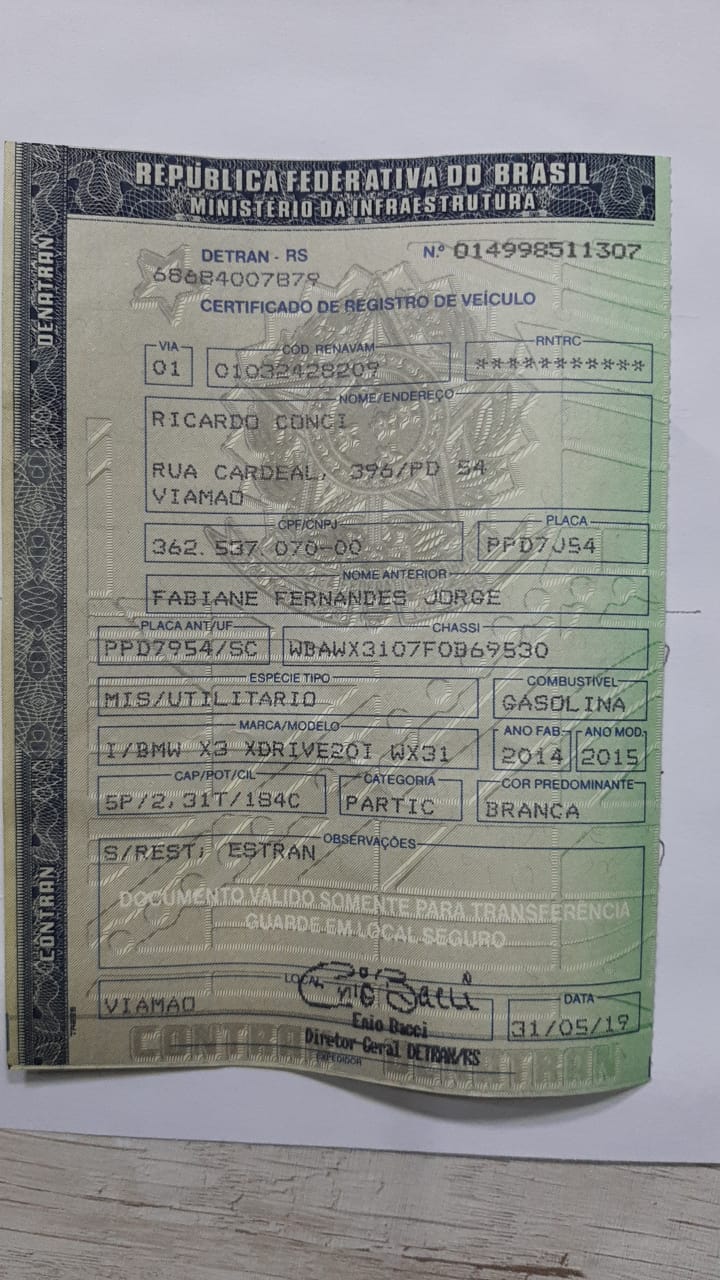 REPÚBLICA FEDERATIVA DO BRASIL
MINISTÉRIO DA INFRAESTRUTURA
DENATRAN
CONTRAN
DETRAN - RS
N.º 014998511307
68684007879
CERTIFICADO DE REGISTRO DE VEÍCULO
VIA
01
CÓD. RENAVAM
01032428209
RNTRC
***********
NOME/ENDEREÇO
RICARDO CONCI
RUA CARDEAL, 396/PD 54
VIAMAO
CPF/CNPJ
362.537.070-00
PLACA
PPD7J54
NOME ANTERIOR
FABIANE FERNANDES JORGE
PLACA ANT/UF
PPD7954/SC
CHASSI
WBAWX3107F0B69530
ESPÉCIE TIPO
MIS/UTILITARIO
COMBUSTÍVEL
GASOLINA
MARCA/MODELO
I/BMW X3 XDRIVE20I WX31
ANO FAB.
2014
ANO MOD.
2015
CAP/POT/CIL
5P/2,31T/184C
CATEGORIA
PARTIC
COR PREDOMINANTE
BRANCA
OBSERVAÇÕES
S/REST; ESTRAN
DOCUMENTO VÁLIDO SOMENTE PARA TRANSFERÊNCIA
GUARDE EM LOCAL SEGURO
LOCAL
VIAMAO
Enio Bacci
Diretor-Geral DETRAN/RS
EXPEDIDOR
DATA
31/05/19
CONTRAN DENATRAN